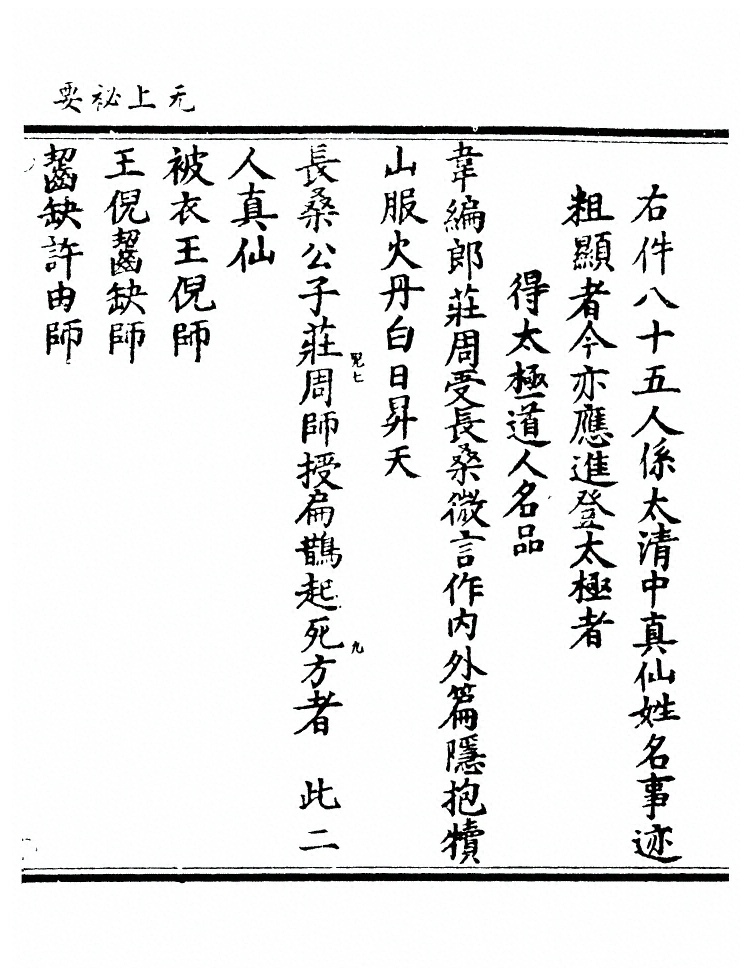 无上祕要
右件八十五人係太清中真仙姓名事迹
粗顯者今亦應進登太極者
得太極道人名品
韋編郎莊周受長桑微言作内外篇隱抱犢
山服火丹白日昇天
長桑公子莊周師授扁鵲起死方者 此二
人真仙
被衣王倪師
王倪齧缺師
齧缺許由師
九